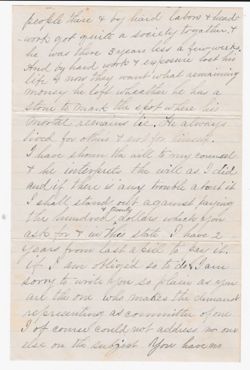 people there & by hard labors & head-
work got quite a society together, &
he was there 3 years less a few weeks.
And by hard work & exposure lost his
life & now they want what remaining
money he left whether he has a
stone to mark the spot where his
mortal remains lie. He always
lived for others & not for himself.
I have shown the will to my counsel
& he interprets the will as I did
and if there is any trouble about it
I shall stand out against paying
the hundred dollars which you
ask for & in this state I have 2
years from last april to pay it.
if I am obliged so to do. I am
sorry to write you so plain as you
are the one who makes the demand
representing as committee of one
I of course could not address no one
else on the subject. You have no